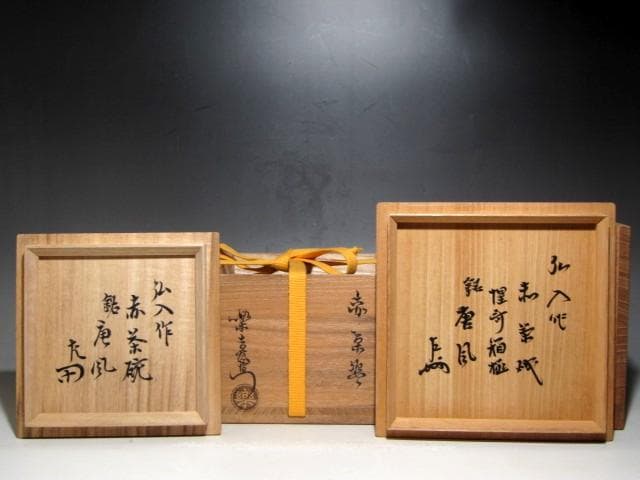 弘入作
赤茶碗
銘 唐風
赤茶碗
楽吉左衛門
弘入作
赤茶碗
銘 唐風